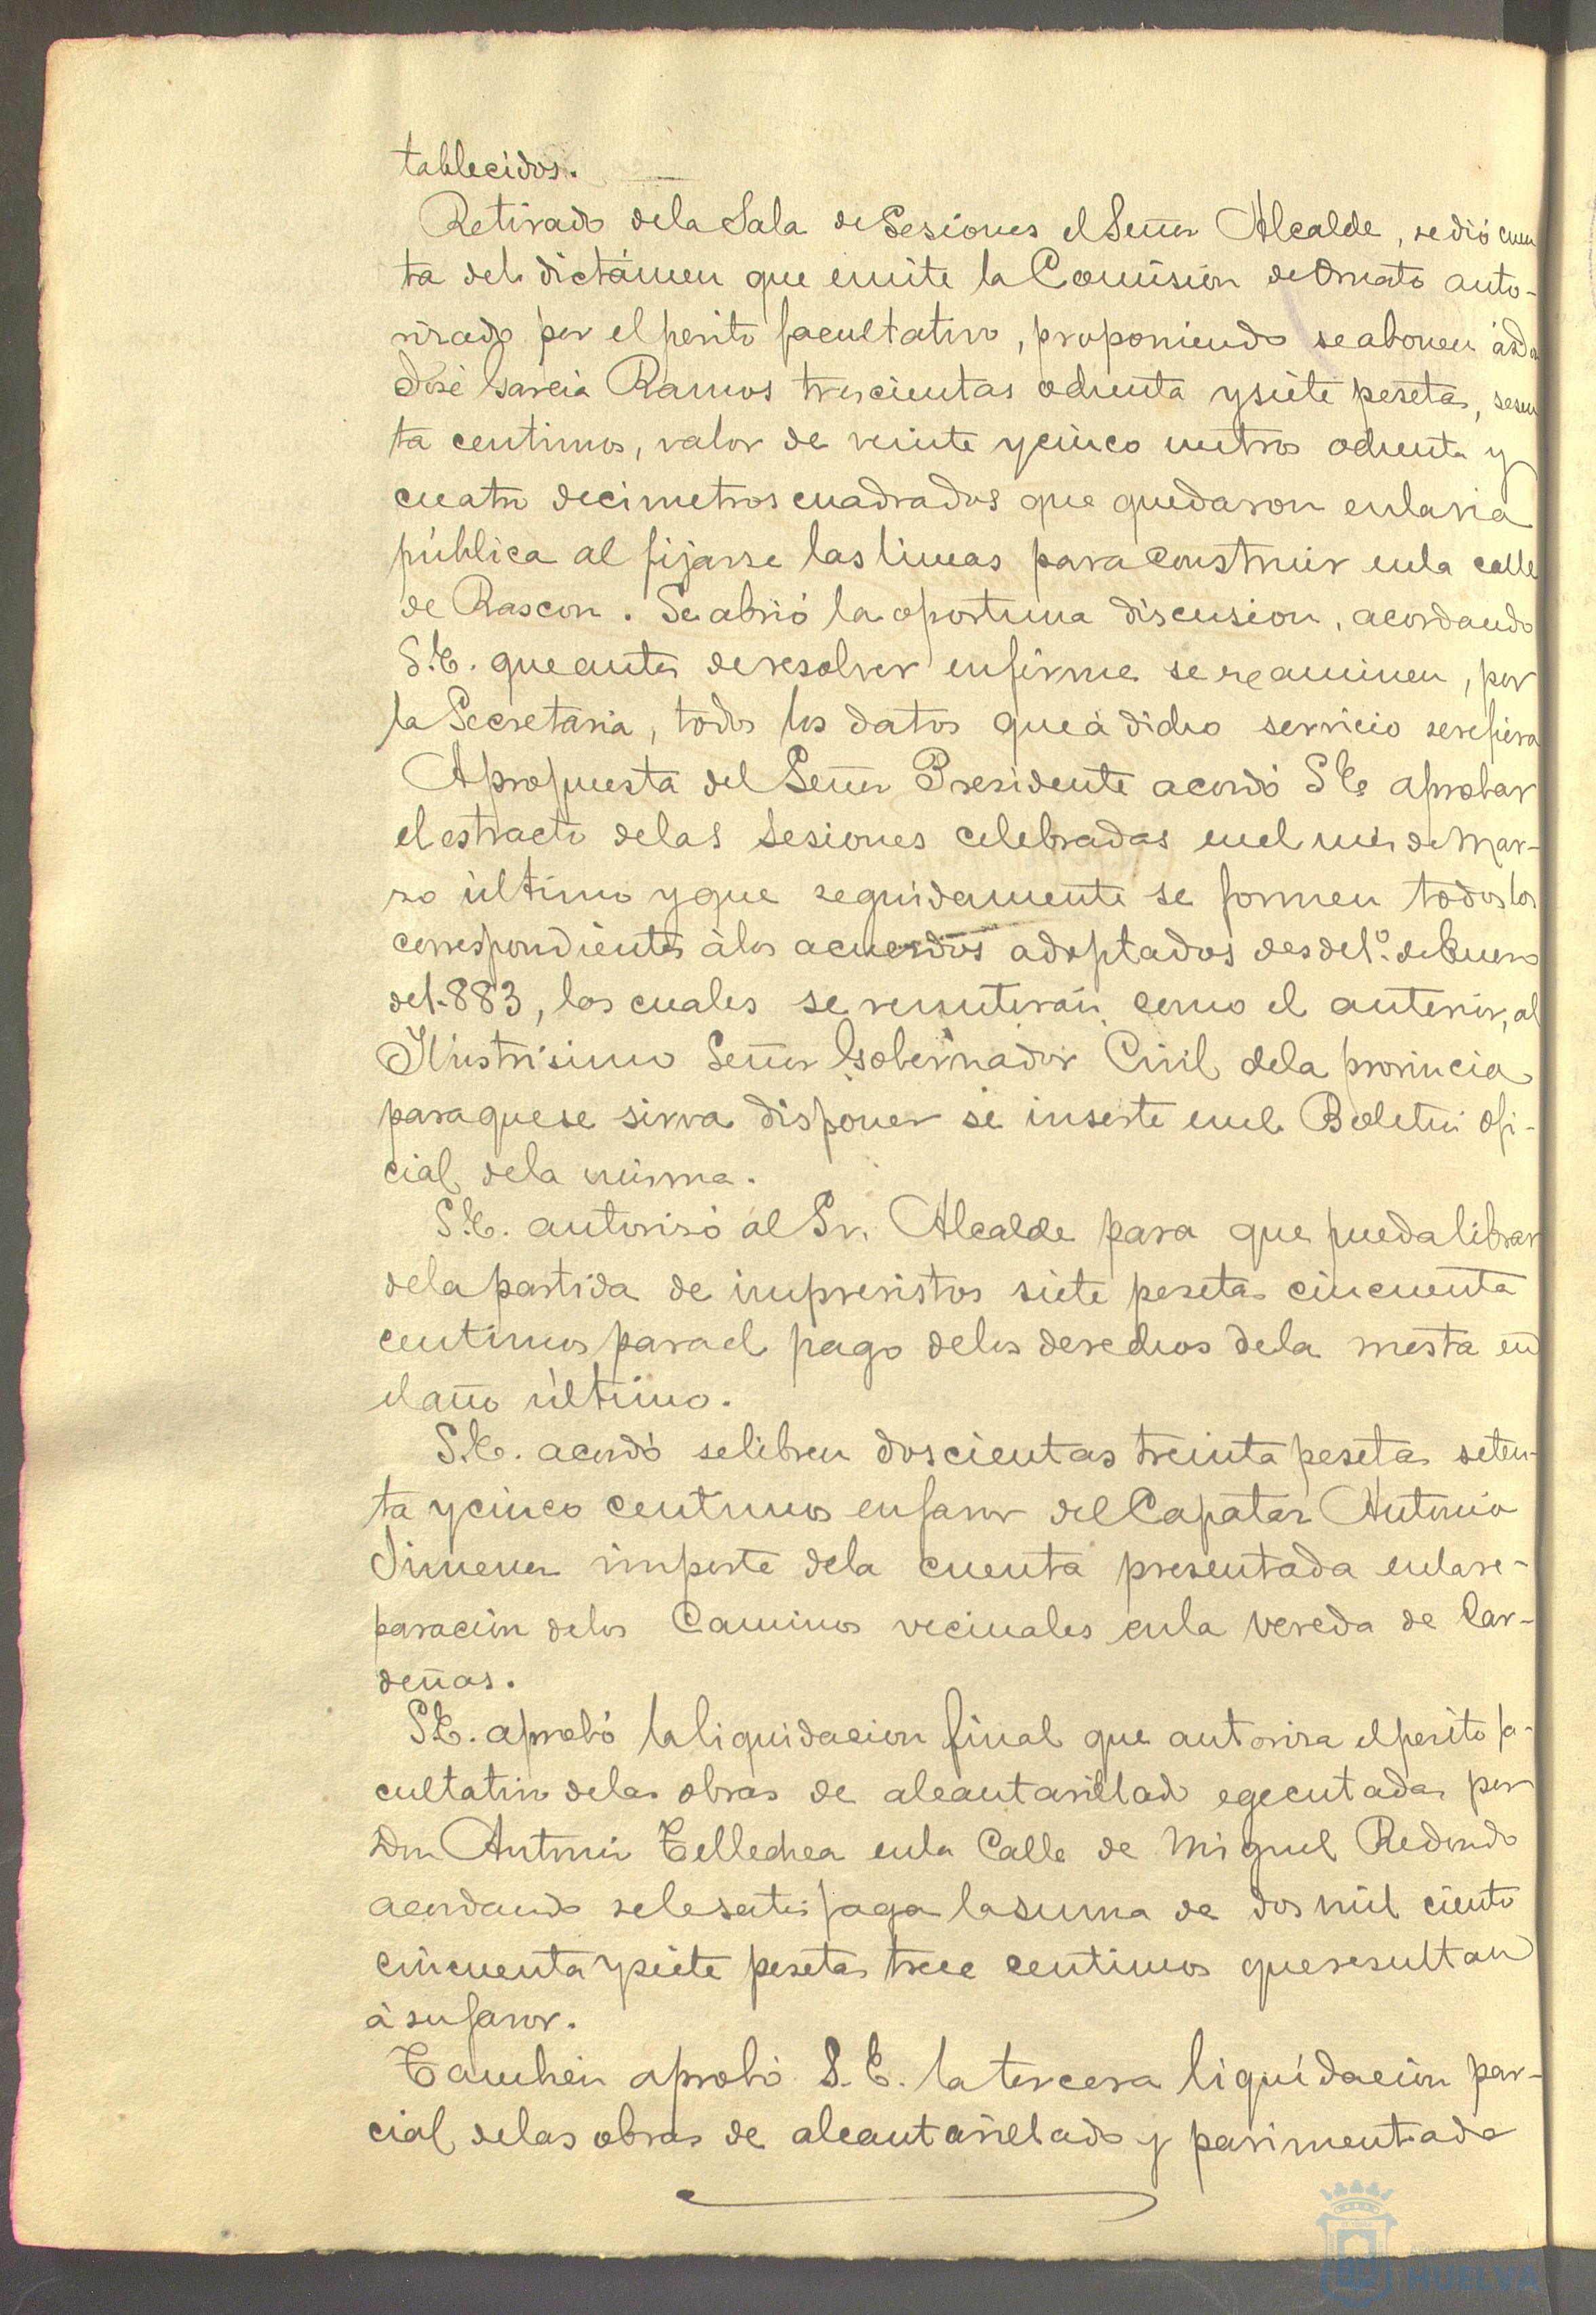 tablecidos.
Retirado dela Sala de Sesiones el Señor Alcalde, se dió cuen
ta del dictámen que emite la Comisión de Ornato auto-
rizado por el perito facultativo, proponiendo se abonen á
José Garcia Ramos trescientas ochenta y siete pesetas, sesen
ta centimos, valor de veinte y cinco metros ochenta y
cuatro decimetros cuadrados que quedaron en la via
pública al fijarse las lineas para construir en la calle
de Rascon. Se abrió la oportuna discusion, acordando
S.E. que antes de resolver en firme se reaminen, por
la Secretaria, todos los datos que á dicho servicio se refiera
A propuesta del Señor Presidente acordó S.E. aprobar
el estracto de las Sesiones celebradas en el mes de Mar-
zo último y que seguidamente se formen todos los
correspondientes á los acuerdos adoptados desde 1º. de Enero
de 1.883, los cuales se remitirán, como el anterior, al
Ilustrísimo Señor Gobernador Civil de la provincia
para que se sirva disponer se inserte en el Boletin ofi-
cial de la misma.
S.E. autorizó al Sr. Alcalde para que pueda librar
de la partida de imprevistos siete pesetas cincuenta
centimos para el pago de los derechos de la mesta en
el año último.
S.E. acordó se libren doscientas treinta pesetas seten-
ta y cinco centimos en favor del Capataz Antonio
Jimenez importe de la cuenta presentada en la re-
paración de los Caminos vecinales en la vereda de Car-
deñas.
S.E. aprobó la liquidacion final que autoriza el perito fa-
cultativo de las obras de alcantarillado egecutadas por
Don Antonio Tellechea en la Calle de Miguel Redondo
acordando se le satisfaga la suma de dos mil ciento
cincuenta y siete pesetas trece centimos que resultan
á su favor.
Tambien aprobó S.E. la tercera liquidación par-
cial de las obras de alcantarillado y pavimentado
HUELVA